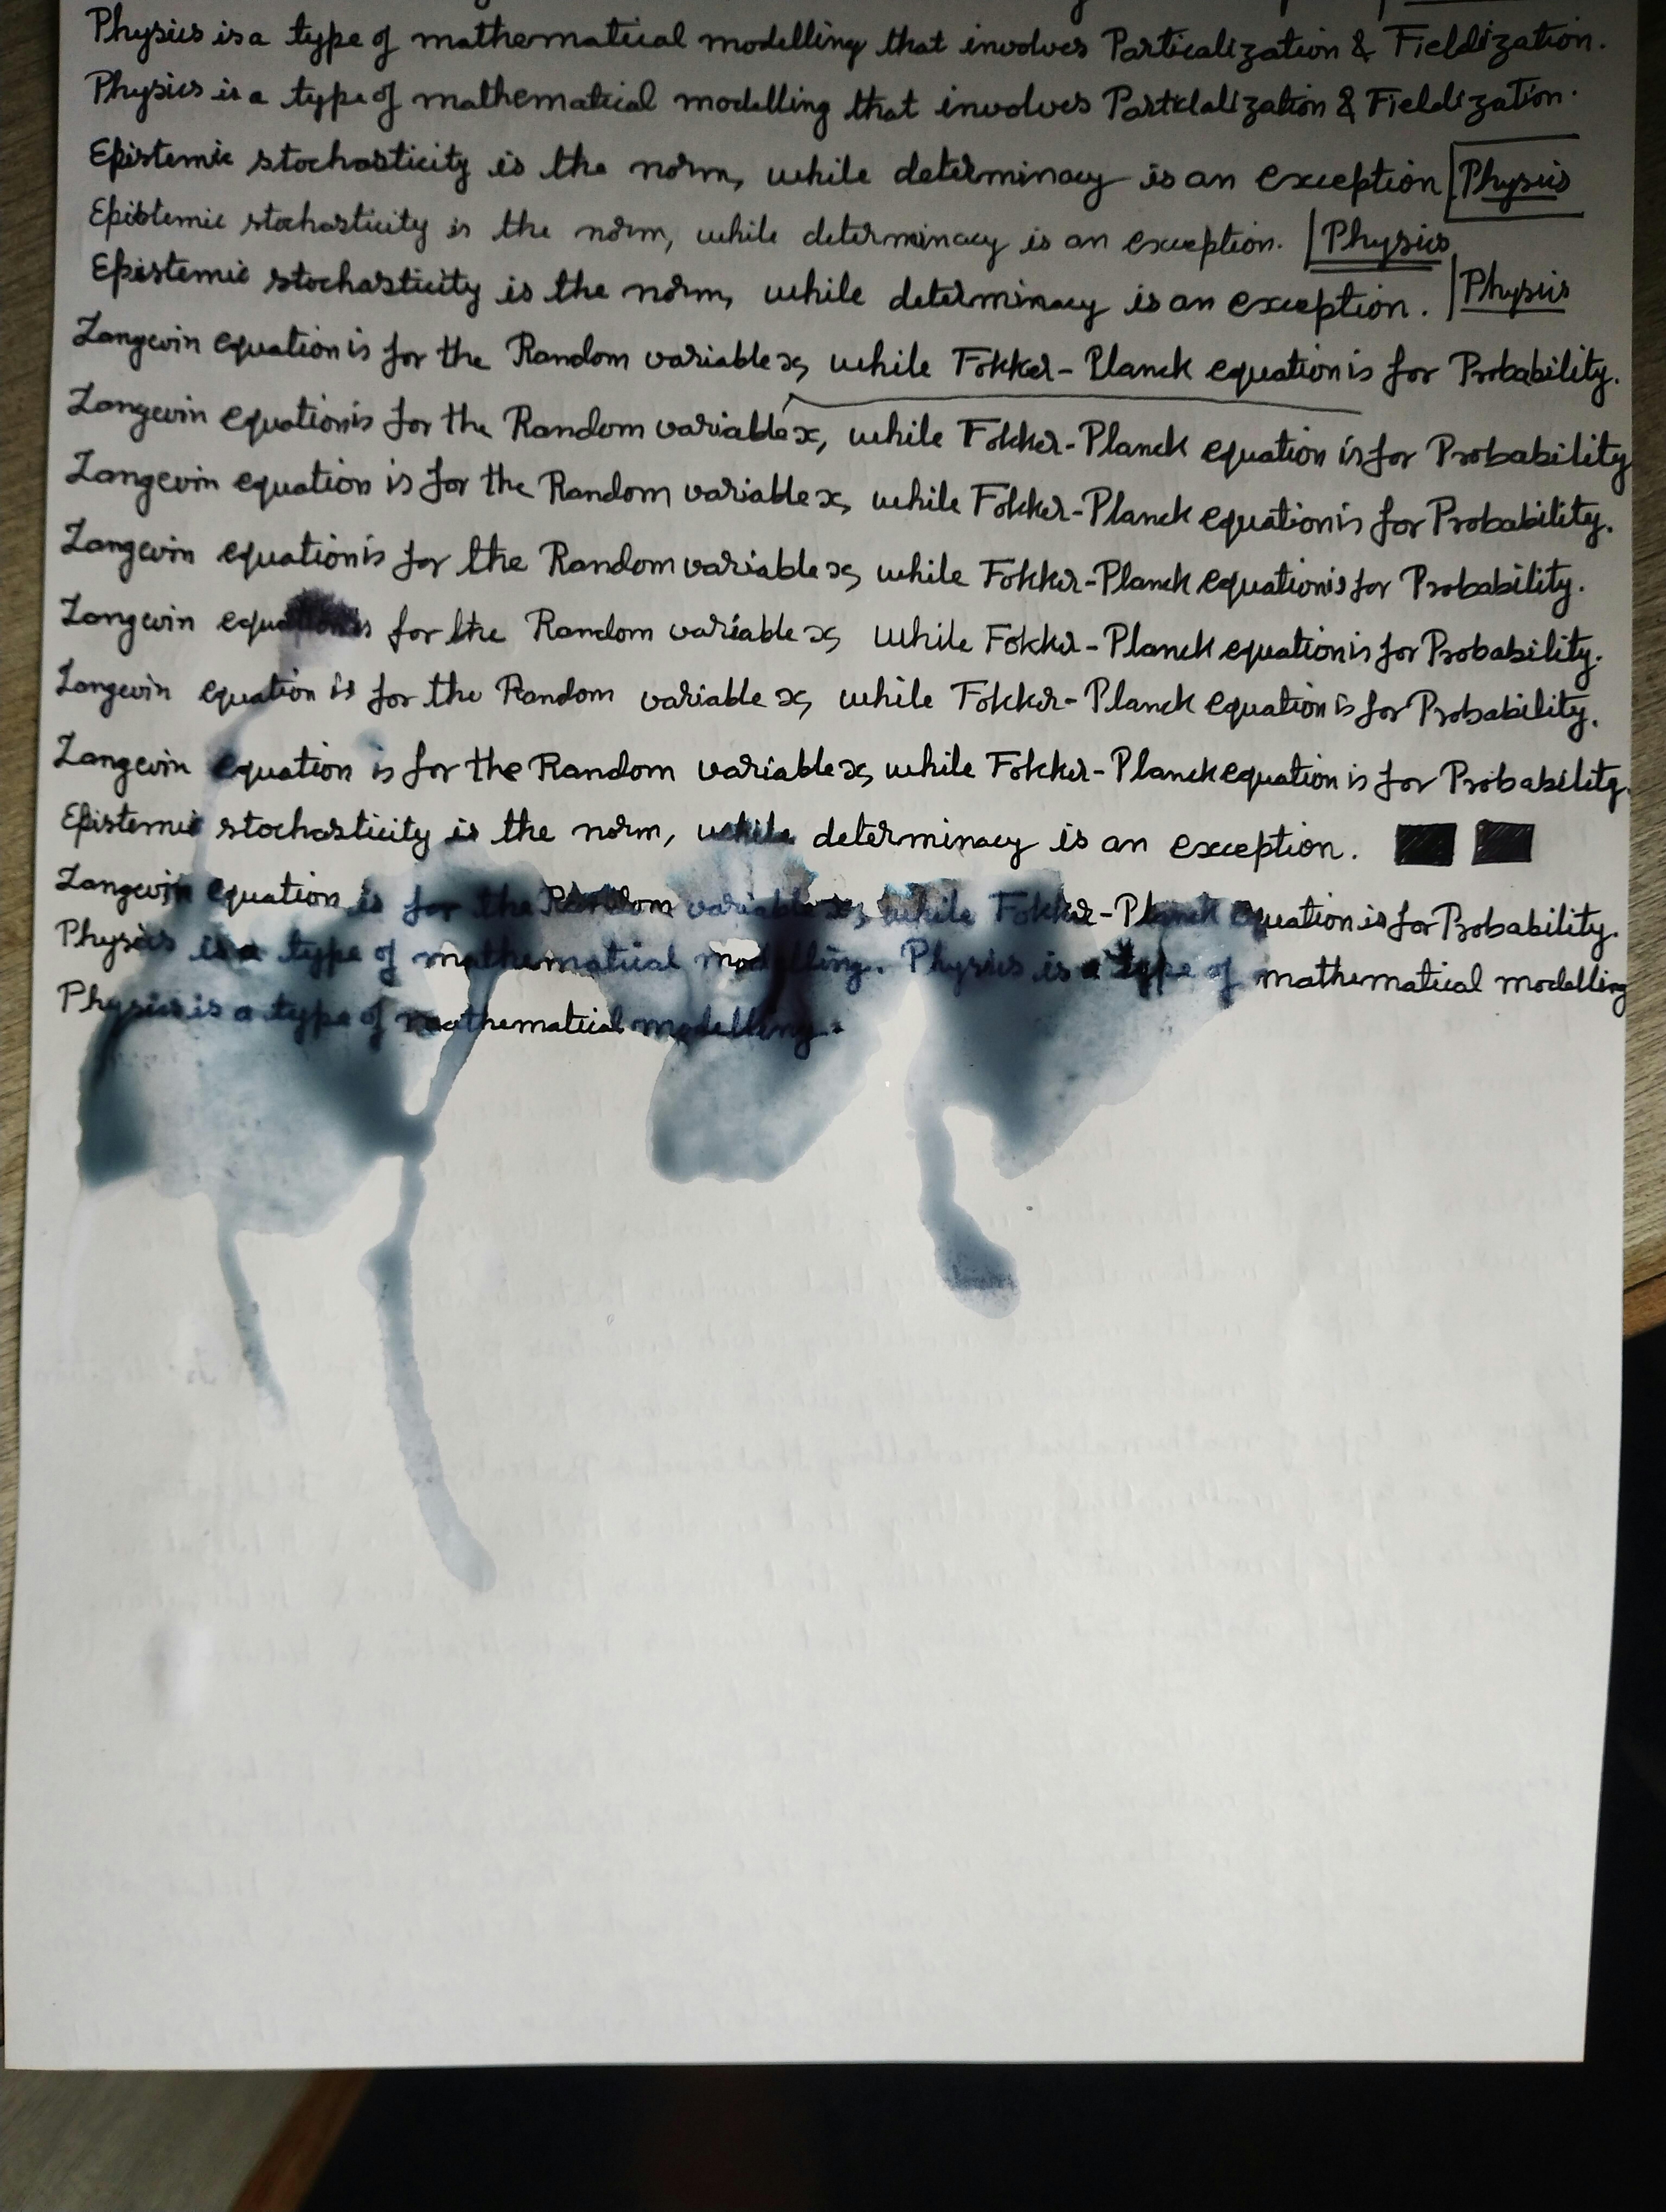 Physics is a type of mathematical modelling that involves Particalization & Fieldization.
Physics is a type of mathematical modelling that involves Particlalization & Fieldization.
Epistemic stochasticity is the norm, while determinacy is an exception Physics
Epistemic stochasticity is the norm, while determinacy is an exception. Physics
Epistemic stochasticity is the norm, while determinacy is an exception. Physics
Langevin equation is for the Random variable x, while Fokker-Planck equation is for Probability.
Langevin equation is for the Random variable x, while Fokker-Planck equation is for Probability
Langevin equation is for the Random variable x, while Fokker-Planck equation is for Probability.
Langevin equation is for the Random variable x, while Fokker-Planck equation is for Probability.
Langevin equation is for the Random variable x, while Fokker-Planck equation is for Probability.
Langevin equation is for the Random variable x, while Fokker-Planck equation is for Probability.
Langevin equation is for the Random variable x, while Fokker-Planck equation is for Probability.
Epistemic stochasticity is the norm, while determinacy is an exception.
Langevin equation is for the Random variable x, while Fokker-Planck equation is for Probability.
Physics is a type of mathematical modelling. Physics is a type of mathematical modelling
Physics is a type of mathematical modelling.